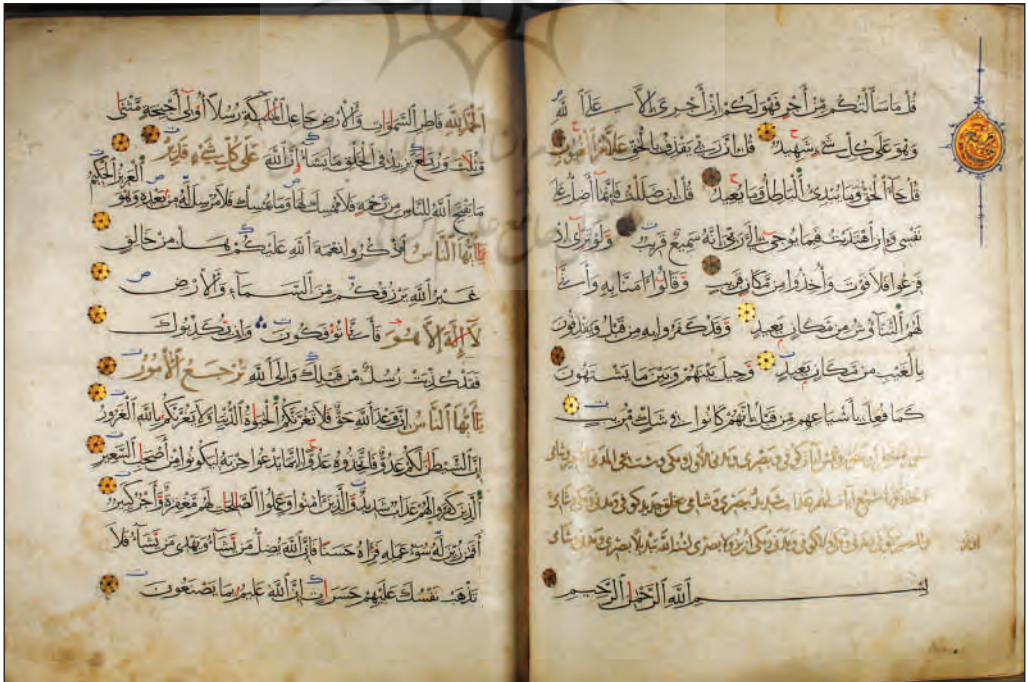 قُلْ مَا سَأَلْتُكُمْ مِنْ أَجْرٍ فَهُوَ لَكُمْ إِنْ أَجْرِيَ إِلَّا عَلَى ٱللَّهِ
وَهُوَ عَلَى كُلِّ شَيْءٍ شَهِيدٌ قُلْ إِنَّ رَبِّي يَقْذِفُ بِالْحَقِّ عَلَّامُ ٱلْغُيُوبِ
قُلْ جَآءَ ٱلْحَقُّ وَمَا يُبْدِئُ ٱلْبَاطِلُ وَمَا يُعِيدُ قُلْ إِنْ ضَلَلْتُ فَإِنَّمَا أَضِلُّ عَلَى
نَفْسِي وَإِنِ ٱهْتَدَيْتُ فَبِمَا يُوحِي إِلَيَّ رَبِّي إِنَّهُ سَمِيعٌ قَرِيبٌ وَلَوْ تَرَى إِذْ
فَزِعُوا فَلَا فَوْتَ وَأُخِذُوا مِنْ مَكَانٍ قَرِيبٍ وَقَالُوا ءَامَنَّا بِهِ وَأَنَّى
لَهُمُ ٱلتَّنَاوُشُ مِنْ مَكَانٍ بَعِيدٍ وَقَدْ كَفَرُوا بِهِ مِنْ قَبْلُ وَيَقْذِفُونَ
بِالْغَيْبِ مِنْ مَكَانٍ بَعِيدٍ وَحِيلَ بَيْنَهُمْ وَبَيْنَ مَا يَشْتَهُونَ
كَمَا فُعِلَ بِأَشْيَاعِهِمْ مِنْ قَبْلُ إِنَّهُمْ كَانُوا فِي شَكٍّ مُرِيبٍ
بِسْمِ ٱللَّهِ ٱلرَّحْمٰنِ ٱلرَّحِيمِ
ٱلْحَمْدُ لِلَّهِ فَاطِرِ ٱلسَّمٰوَاتِ وَٱلْأَرْضِ جَاعِلِ ٱلْمَلٰئِكَةِ رُسُلًا أُولِي أَجْنِحَةٍ مَثْنَى
وَثُلَاثَ وَرُبَاعَ يَزِيدُ فِي ٱلْخَلْقِ مَا يَشَآءُ إِنَّ ٱللَّهَ عَلَى كُلِّ شَيْءٍ قَدِيرٌ
مَا يَفْتَحِ ٱللَّهُ لِلنَّاسِ مِنْ رَحْمَةٍ فَلَا مُمْسِكَ لَهَا وَمَا يُمْسِكْ فَلَا مُرْسِلَ لَهُ مِنْ بَعْدِهِ وَهُوَ ٱلْعَزِيزُ ٱلْحَكِيمُ
يَآ أَيُّهَا ٱلنَّاسُ ٱذْكُرُوا نِعْمَةَ ٱللَّهِ عَلَيْكُمْ هَلْ مِنْ خَالِقٍ
غَيْرُ ٱللَّهِ يَرْزُقُكُمْ مِنَ ٱلسَّمَآءِ وَٱلْأَرْضِ
لَآ إِلٰهَ إِلَّا هُوَ فَأَنَّى تُؤْفَكُونَ وَإِنْ يُكَذِّبُوكَ
فَقَدْ كُذِّبَتْ رُسُلٌ مِنْ قَبْلِكَ وَإِلَى ٱللَّهِ تُرْجَعُ ٱلْأُمُورُ
يَآ أَيُّهَا ٱلنَّاسُ إِنَّ وَعْدَ ٱللَّهِ حَقٌّ فَلَا تَغُرَّنَّكُمُ ٱلْحَيٰوةُ ٱلدُّنْيَا وَلَا يَغُرَّنَّكُمْ بِاللَّهِ ٱلْغَرُورُ
إِنَّ ٱلشَّيْطَانَ لَكُمْ عَدُوٌّ فَاتَّخِذُوهُ عَدُوًّا إِنَّمَا يَدْعُوا حِزْبَهُ لِيَكُونُوا مِنْ أَصْحَابِ ٱلسَّعِيرِ
ٱلَّذِينَ كَفَرُوا لَهُمْ عَذَابٌ شَدِيدٌ وَٱلَّذِينَ ءَامَنُوا وَعَمِلُوا ٱلصَّالِحَاتِ لَهُمْ مَغْفِرَةٌ وَأَجْرٌ كَبِيرٌ
أَفَمَنْ زُيِّنَ لَهُ سُوٓءُ عَمَلِهِ فَرَءَاهُ حَسَنًا فَإِنَّ ٱللَّهَ يُضِلُّ مَنْ يَشَآءُ وَيَهْدِي مَنْ يَشَآءُ فَلَا
تَذْهَبْ نَفْسُكَ عَلَيْهِمْ حَسَرَاتٍ إِنَّ ٱللَّهَ عَلِيمٌ بِمَا يَصْنَعُونَ